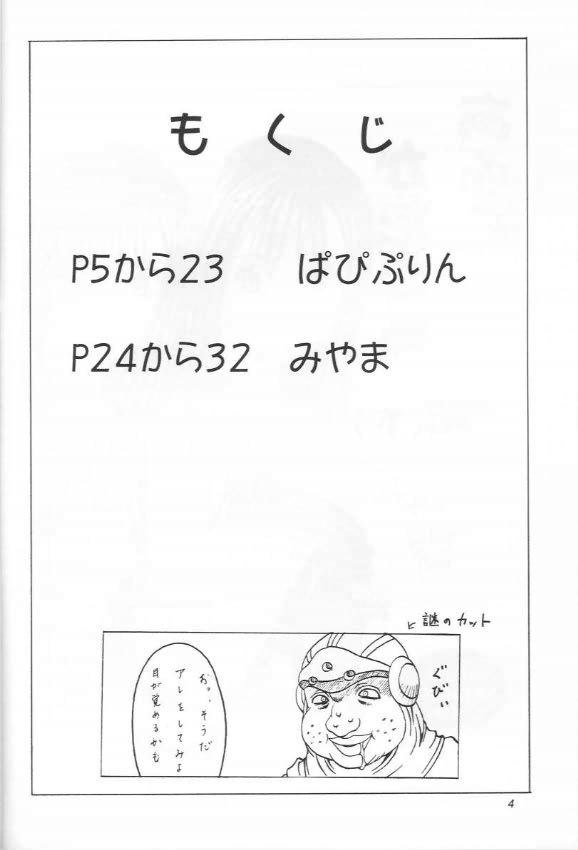 もくじ
P5から23 ぱぴぷりん
P24から32 みやま
謎のカット
ぐびぃ
お゛、そうだ
アレをしてみよ
目が覚めるかも
4